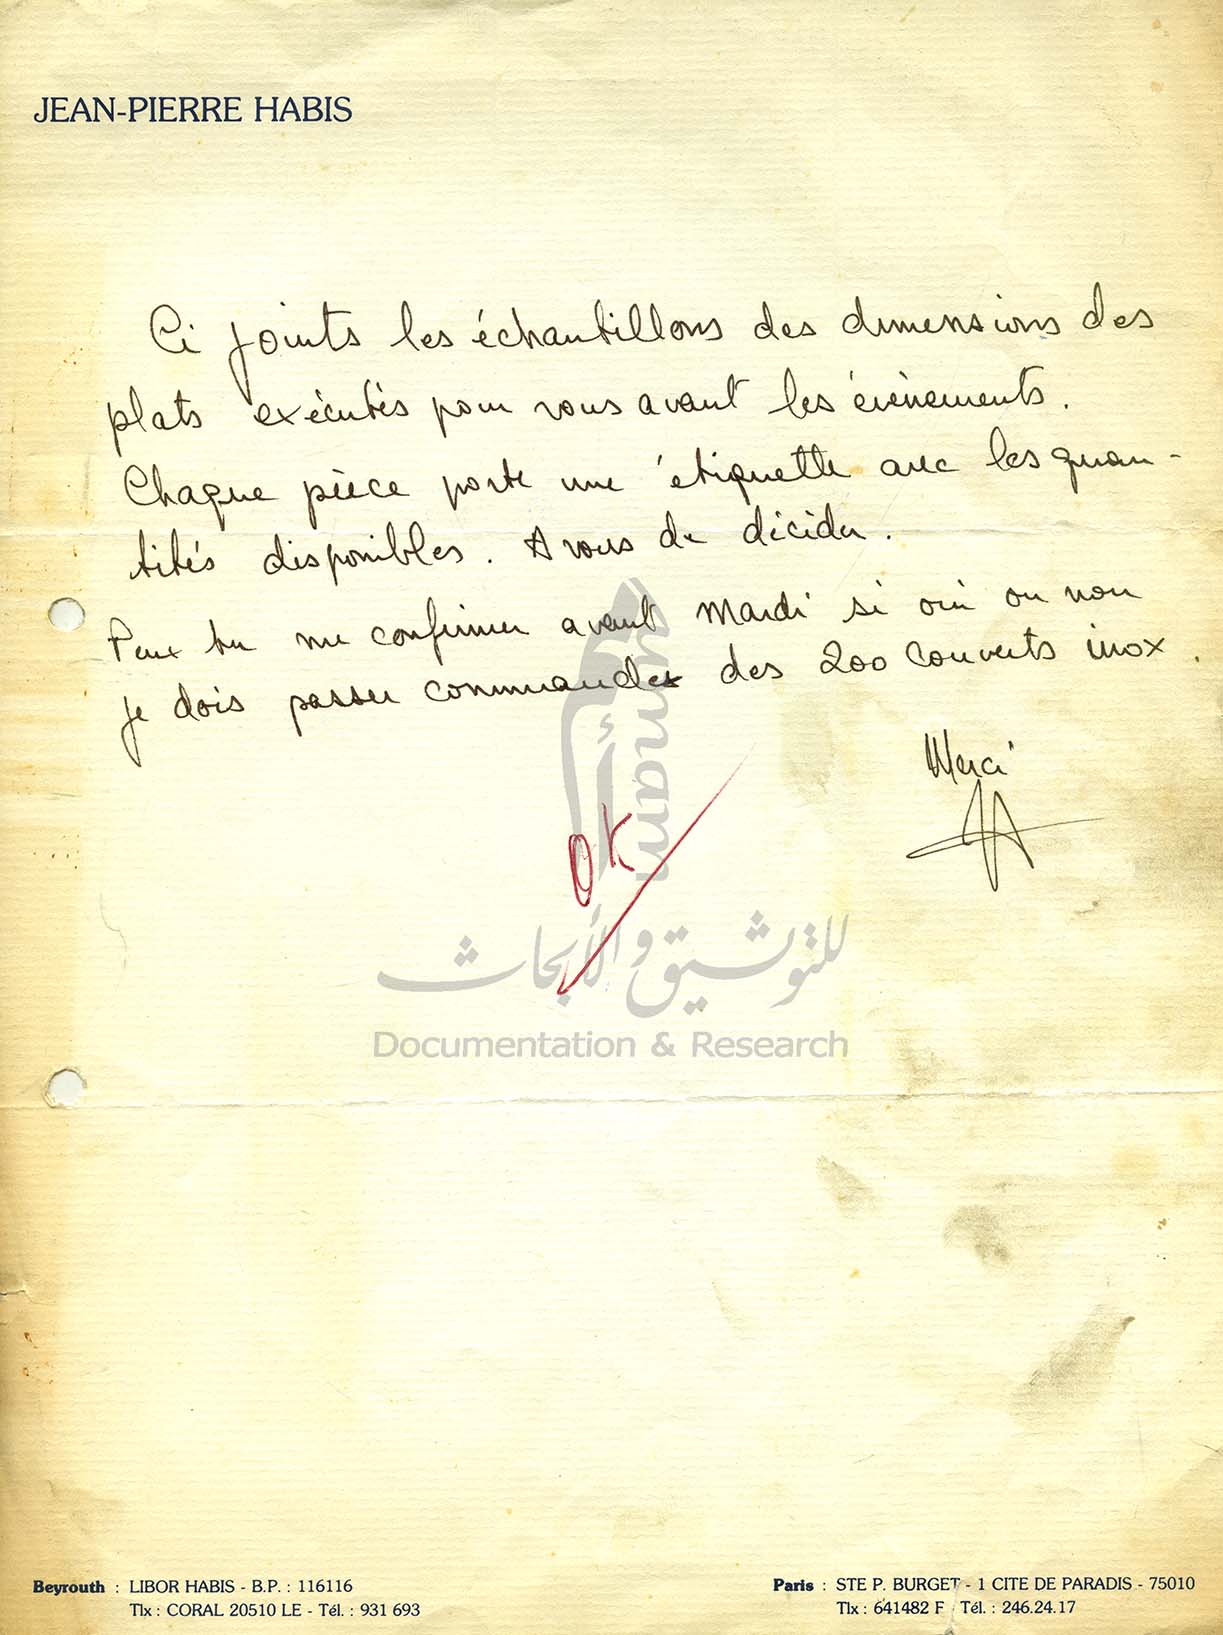 JEAN-PIERRE HABIS
Ci joints les échantillons des dimensions des
plats exécutés pour vous avant les évènements.
Chaque pièce porte une étiquette avec les quan-
tités disponibles. A vous de décider.
Peux tu me confirmer avant Mardi si oui ou non
je dois passer commande des 200 couverts inox.
Merci
OK
أمم
umam
للتوثيق والأبحاث
Documentation & Research
Beyrouth : LIBOR HABIS - B.P. : 116116
Tlx : CORAL 20510 LE - Tél. : 931 693
Paris : STE P. BURGET - 1 CITE DE PARADIS - 75010
Tlx : 641482 F Tél. : 246.24.17